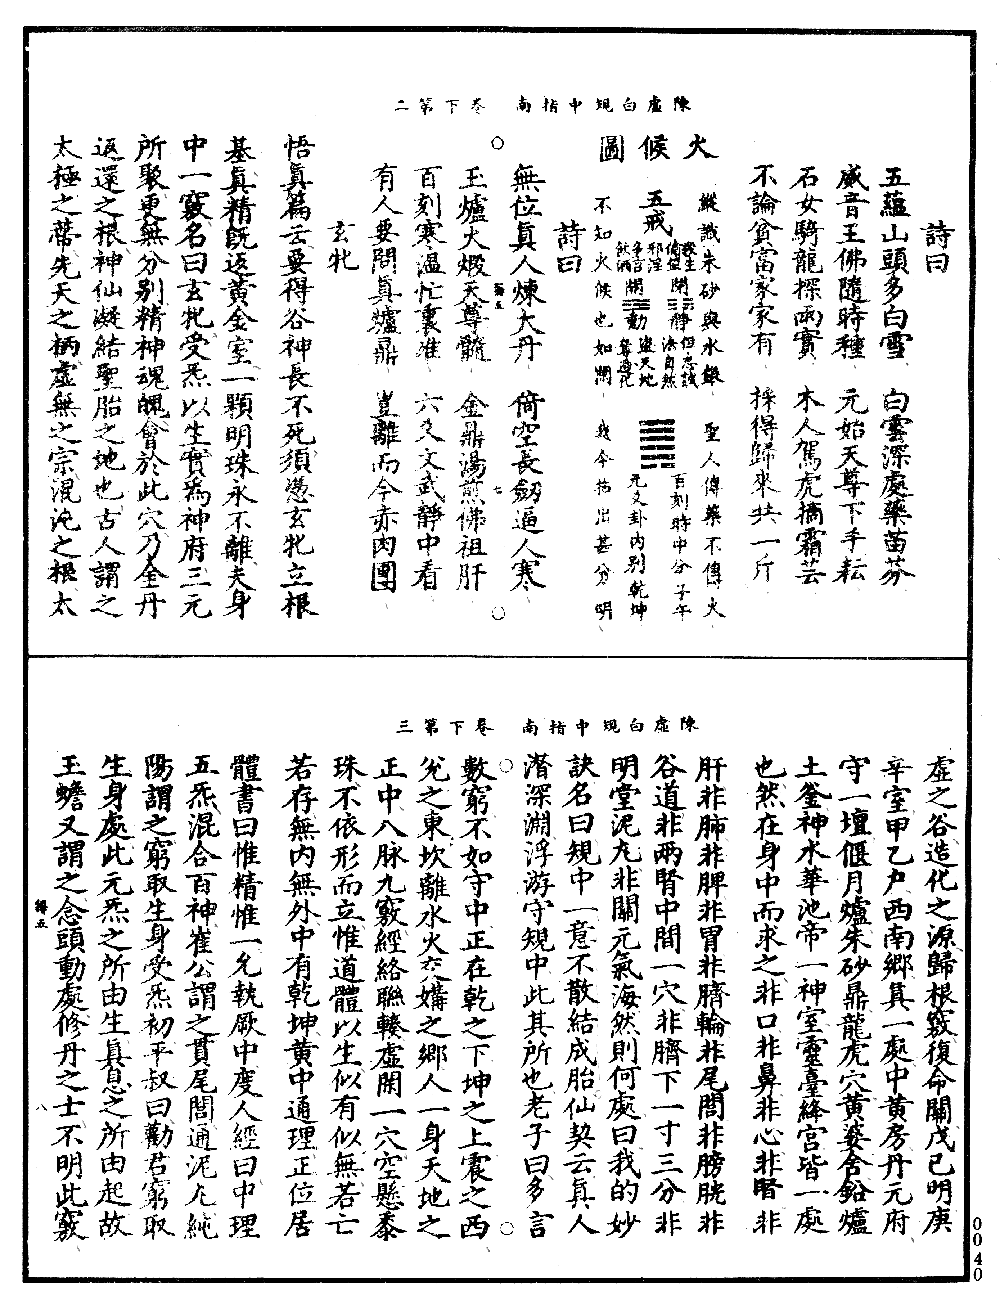 陳虛白規中指南　卷下第二
詩曰
五蘊山頭多白雪　白雲深處藥苗芬
威音王佛隨時種　元始天尊下手耘
石女騎龍探𣵠實　木人駕虎摘霜芸
不論貧富家家有　採得歸來共一斤
火候圖
縱識朱砂與水銀　聖人傳藥不傳火
五戒
殺生
偷盜
邪淫
妄言
飲酒
閉☵靜
開☳動
但忘識
法自然
盜天地
奪造化
百刻時中分子午
元爻卦內別乾坤
不知火候也如閑　我今指出甚分明
詩曰
無位真人煉大丹　倚空長劒逼人寒
玉爐火煅天尊髓　金鼎湯煎佛祖肝
百刻寒溫忙裏准　六爻文武靜中看
有人要問真爐鼎　豈離而今赤肉團
玄牝
悟真篇云要得谷神長不死須憑玄牝立根
基真精旣返黃金室一顆明珠永不離夫身
中一竅名曰玄牝受炁以生實為神府三元
所聚更無分別精神魂魄會於此穴乃金丹
返還之根神仙凝結聖胎之地也古人謂之
太極之蔕先天之柄虛無之宗混沌之根太
陳虛白規中指南　卷下第三
虛之谷造化之源歸根竅復命關戊己明庚
辛室甲乙戶西南鄉真一處中黃房丹元府
守一壇偃月爐朱砂鼎龍虎穴黃婆舍鉛爐
土釜神水華池帝一神室靈臺絳宮皆一處
也然在身中而求之非口非鼻非心非腎非
肝非肺非脾非胃非臍輪非尾閭非膀胱非
谷道非兩腎中間一穴非臍下一寸三分非
明堂泥丸非關元氣海然則何處曰我的妙
訣名曰規中一意不散結成胎仙契云真人
潛深淵浮游守規中此其所也老子曰多言
數窮不如守中正在乾之下坤之上震之西
兌之東坎離水火交媾之鄉人一身天地之
正中八脉九竅經絡聯輳虛閑一穴空懸黍
珠不依形而立惟道體以生似有似無若亡
若存無內無外中有乾坤黃中通理正位居
體書曰惟精惟一允執厥中度人經曰中理
五炁混合百神崔公謂之貫尾閭通泥丸純
陽謂之窮取生身受炁初平叔曰勸君窮取
生身處此元炁之所由生真息之所由起故
玉蟾又謂之念頭動處修丹之士不明此竅
0040